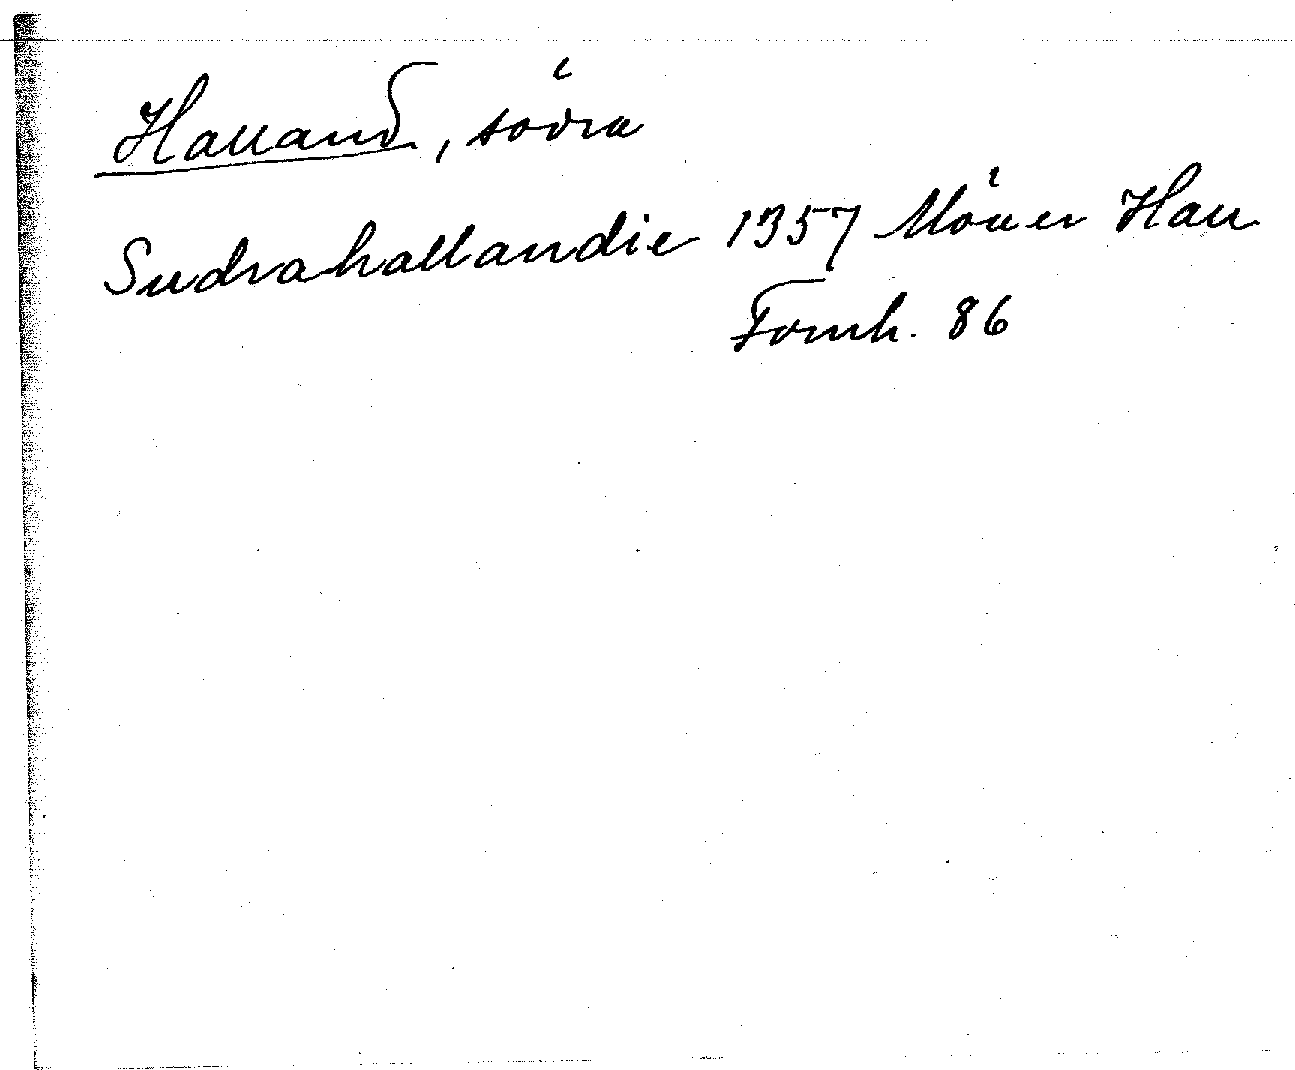 Halland, södra
Sudrahallandie 1357 Möller Hall
Fornh. 86